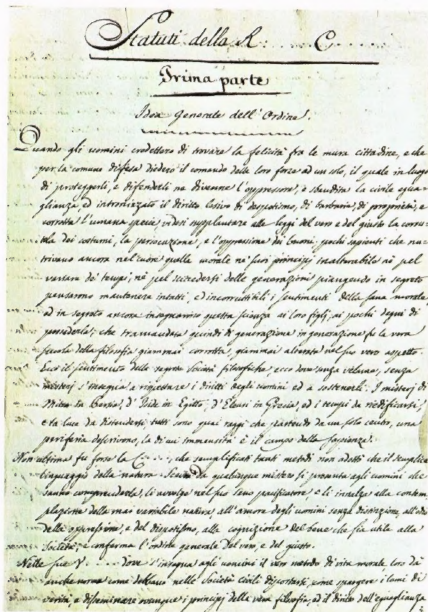 Statuti della R: . . . C. . . .
Prima parte
Idea Generale dell'Ordine.
Quando gli uomini credettero di trovare la felicità fra le mura cittadine, e che
per la comune difesa diedero il comando delle loro forze ad un solo, il quale in luogo
di proteggerli, e difenderli ne divenne l'oppressore, e sbandita la civile egua-
glianza, ed intronizzato il diritto lesivo di dispotismo, di barbarie, di proprietà, e
corrotta l'umana specie, videsi soppiantare alle leggi del vero e del giusto la corru-
tela dei costumi, la persecuzione, e l'oppressione dei buoni, pochi sapienti che nu-
trivano ancora nel cuore quella morale ne' suoi principj inalterabile nè pel
variare de' tempi, nè pel succedersi delle generazioni piangendo in segreto
pensarono mantenere intatti, ed incorruttibili i sentimenti della sana morale
ed in segreto ancora insegnarono questa scienza ai loro figli, ai pochi degni di
possederla; che tramandata quindi di generazione in generazione fu la vera
scuola della filosofia giammai corrotta, giammai alterata nel suo vero aspetto.
Ecco il sentimento delle segrete Società filosofiche, ecco dove senza velame, senza
misterj s'insegna a rispettare i diritti degli uomini ed a sostenerli. I misterj di
Mitra in Persia, d'Iside in Egitto, d'Eleusi in Grecia, ed i tempj da riedificarsi,
e la luce da diffondersi tutti sono quei raggi che partendo da un solo centro, una
periferia descrivono, la di cui immensità è il campo della sapienza.
Non ultima fu forse la C. . . . . che semplificati tanti metodi non adottò che il semplice
linguaggio della natura. Scevra da qualunque mistero si presenta agli uomini che
sanno comprenderla, li accoglie nel suo seno purificatore e li innalza alla contem-
plazione della mai variabile natura all'amore degli uomini senza distinzione, all'odio
della oppressione, e del dispotismo, alla cognizione del bene che sia utile alla
Società, e conforme l'ordine generale del vero, e del giusto.
Nelle sue V. . . . dove s'insegna agli uomini il vero metodo di vita morale, loro dà
anche norma come debbano nelle Società civili diportarsi, come spargere i lumi di
verità, a disseminare ovunque i principj della vera filosofia, ed il diritto dell'eguaglianza.